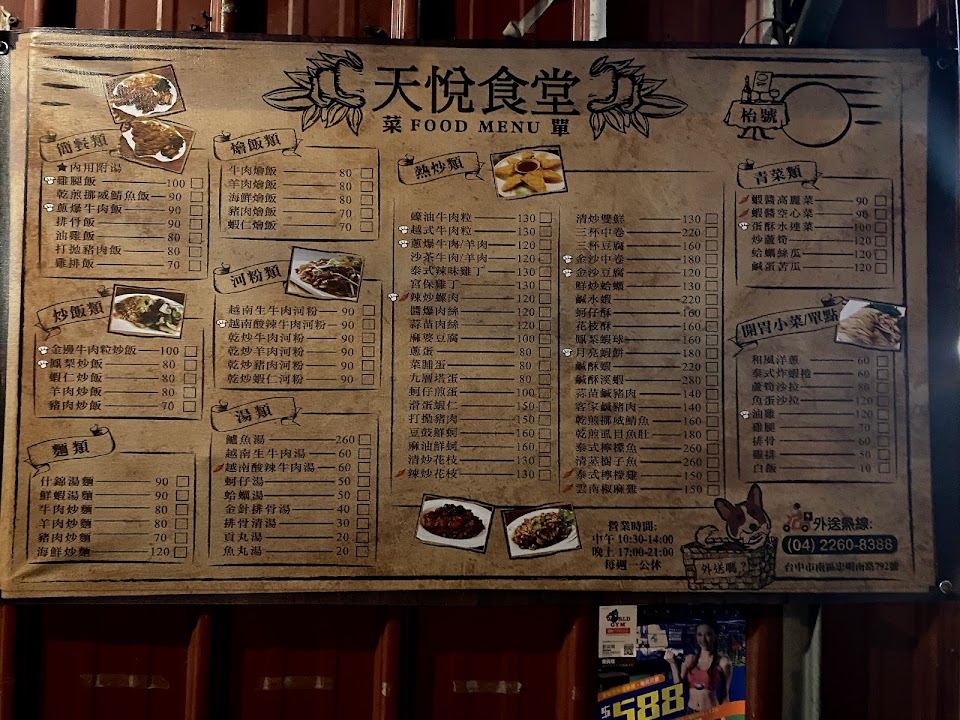 天悅食堂
菜 FOOD MENU 單
怡號
簡餐類
★內用附湯
雞腿飯 100
乾煎挪威鯖魚飯 90
蔥爆牛肉飯 90
排骨飯 90
油雞飯 80
打拋豬肉飯 80
雞排飯 70
炒飯類
金邊牛肉粒炒飯 100
鳳梨炒飯 80
蝦仁炒飯 80
羊肉炒飯 80
豬肉炒飯 70
麵類
什錦湯麵 90
鮮蝦湯麵 90
牛肉炒麵 80
羊肉炒麵 80
豬肉炒麵 70
海鮮炒麵 120
燴飯類
牛肉燴飯 80
羊肉燴飯 80
海鮮燴飯 80
豬肉燴飯 70
蝦仁燴飯 70
河粉類
越南生牛肉河粉 90
越南酸辣牛肉河粉 90
乾炒牛肉河粉 90
乾炒羊肉河粉 90
乾炒豬肉河粉 90
乾炒蝦仁河粉 90
湯類
鱸魚湯 260
越南生牛肉湯 60
越南酸辣牛肉湯 60
蚵仔湯 50
蛤蠣湯 50
金針排骨湯 40
排骨清湯 30
貢丸湯 20
魚丸湯 20
熱炒類
蠔油牛肉粒 130
越式牛肉粒 130
蔥爆牛肉/羊肉 120
沙茶牛肉/羊肉 120
泰式辣味雞丁 130
宮保雞丁 130
辣炒螺肉 120
醬爆肉絲 120
蒜苗肉絲 120
麻婆豆腐 100
蔥蛋 80
菜脯蛋 80
九層塔蛋 80
蚵仔煎蛋 100
滑蛋蝦仁 150
打拋豬肉 150
豆豉鮮蚵 160
麻油鮮蚵 160
清炒花枝 130
辣炒花枝 130
清炒雙鮮 130
三杯中卷 220
三杯豆腐 160
金沙中卷 180
金沙豆腐 120
鮮炒蛤蠣 130
鹹水蝦 220
蚵仔酥 160
花枝酥 160
鳳梨蝦球 160
月亮蝦餅 180
鹹酥蝦 220
鹹酥溪蝦 280
蒜苗鹹豬肉 140
客家鹹豬肉 140
乾煎挪威鯖魚 160
乾煎虱目魚肚 180
泰式檸檬魚 260
清蒸樹子魚 260
泰式檸檬雞 150
雲南椒麻雞 150
青菜類
蝦醬高麗菜 90
蝦醬空心菜 90
蛋酥水蓮菜 100
炒蘆筍 120
蛤蠣絲瓜 120
鹹蛋苦瓜 120
開胃小菜/單點
和風洋蔥 60
泰式炸蝦捲 60
蘆筍沙拉 80
魚蛋沙拉 120
油雞 120
雞腿 70
排骨 60
雞排 50
白飯 10
營業時間:
中午 10:30-14:00
晚上 17:00-21:00
每週一公休
外送嗎?
外送熱線:
(04) 2260-8388
台中市南區忠明南路792號
WORLD GYM
588